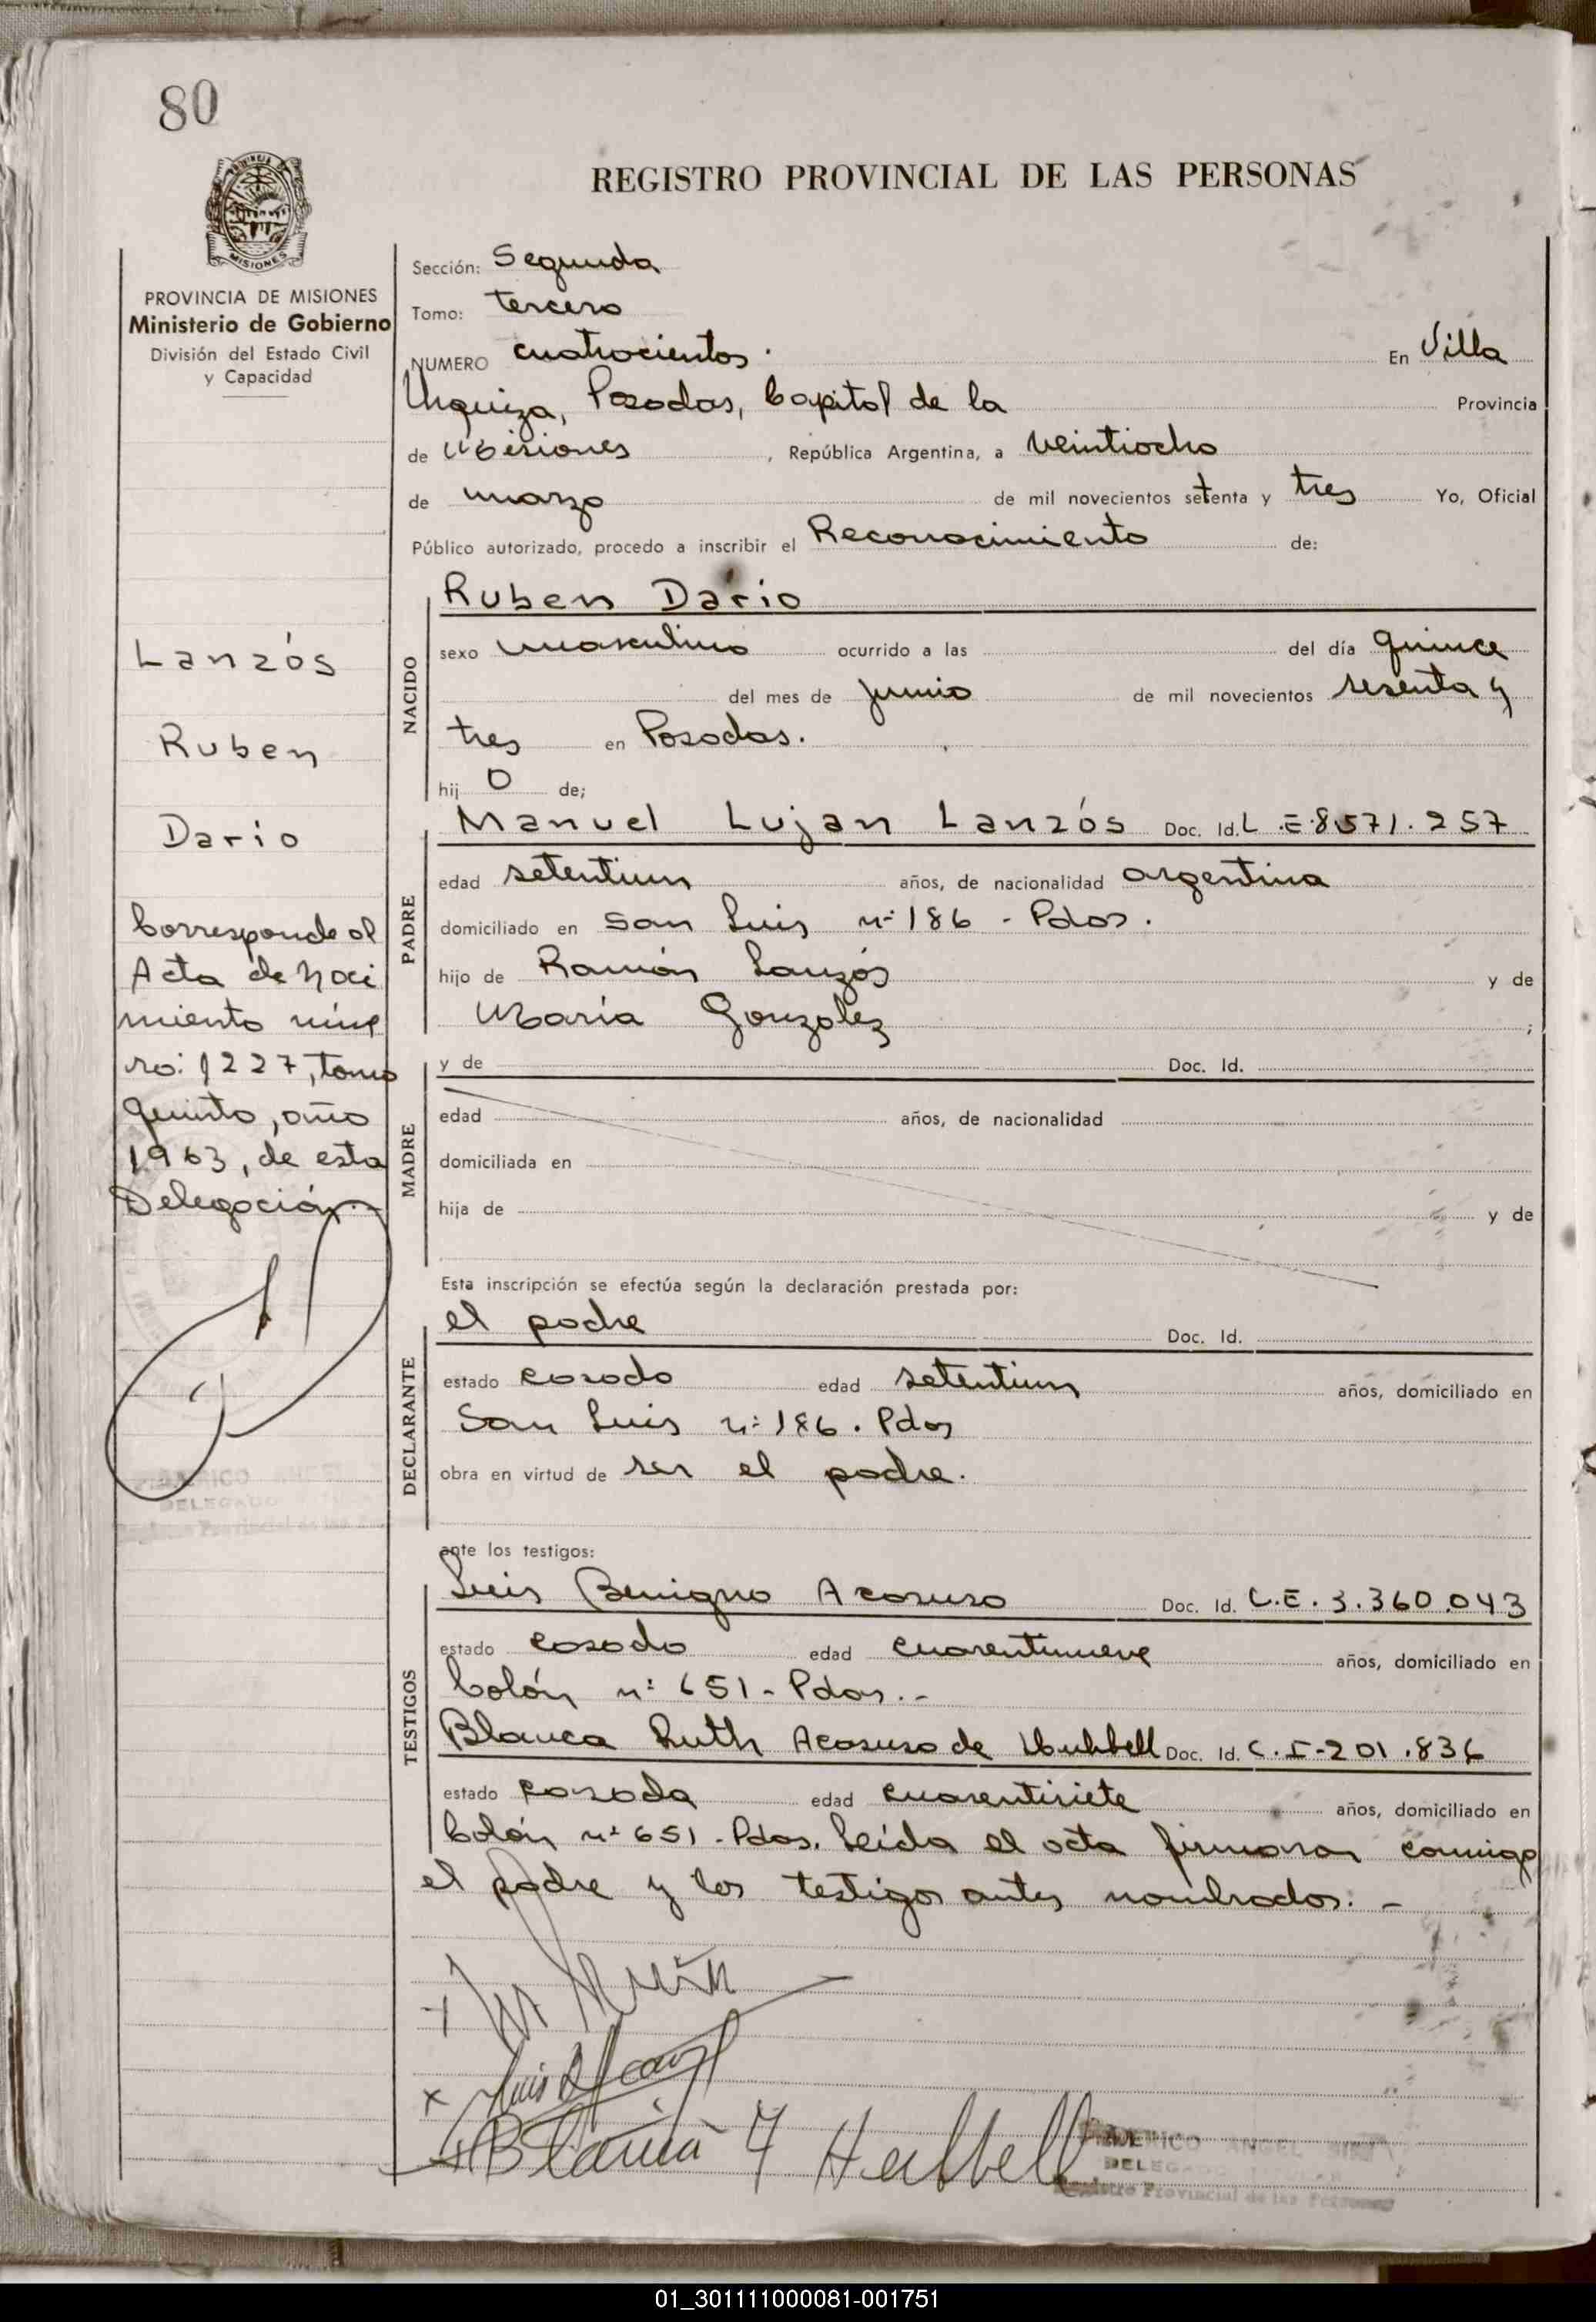 80
REGISTRO PROVINCIAL DE LAS PERSONAS
MISIONES
PROVINCIA DE MISIONES
Ministerio de Gobierno
División del Estado Civil
y Capacidad
Lanzós
Ruben
Dario
Corresponde al
Acta de Naci
miento núme
ro: 1227, tomo
quinto, año
1963, de esta
Delegación.-
Sección: Segunda
Tomo: tercero
NUMERO cuatrocientos. En Villa
Urquiza, Posadas, Capital de la Provincia
de Misiones, República Argentina, a veintiocho
de marzo de mil novecientos setenta y tres Yo, Oficial
Público autorizado, procedo a inscribir el Reconocimiento de:
NACIDO
Ruben Dario
sexo masculino ocurrido a las del día quince
del mes de junio de mil novecientos sesenta y
tres en Posadas.
hij o de;
PADRE
Manuel Lujan Lanzós Doc. Id. L.E. 8.571.257
edad setentiun años, de nacionalidad argentina
domiciliado en San Luis nº 186 - Pdas.
hijo de Ramón Lanzós y de
María Gonzalez ;
MADRE
y de Doc. Id.
edad años, de nacionalidad
domiciliada en
hija de y de
Esta inscripción se efectúa según la declaración prestada por:
DECLARANTE
el padre Doc. Id.
estado casado edad setentiun años, domiciliado en
San Luis nº 186. Pdas
obra en virtud de ser el padre.
ante los testigos:
TESTIGOS
Luis Benigno Acasuso Doc. Id. L.E. 3.360.043
estado casado edad cuarentinueve años, domiciliado en
Colón nº 651 - Pdas.-
Blanca Ruth Acasuso de Hubbell Doc. Id. C.I-201.836
estado casada edad cuarentisiete años, domiciliado en
Colón nº 651 - Pdas. Leída el acta firman conmigo
el padre y los testigos antes nombrados.-
Blanca Hubbell
ANGEL
DELEGADO
Registro Provincial de las Personas
01_301111000081-001751